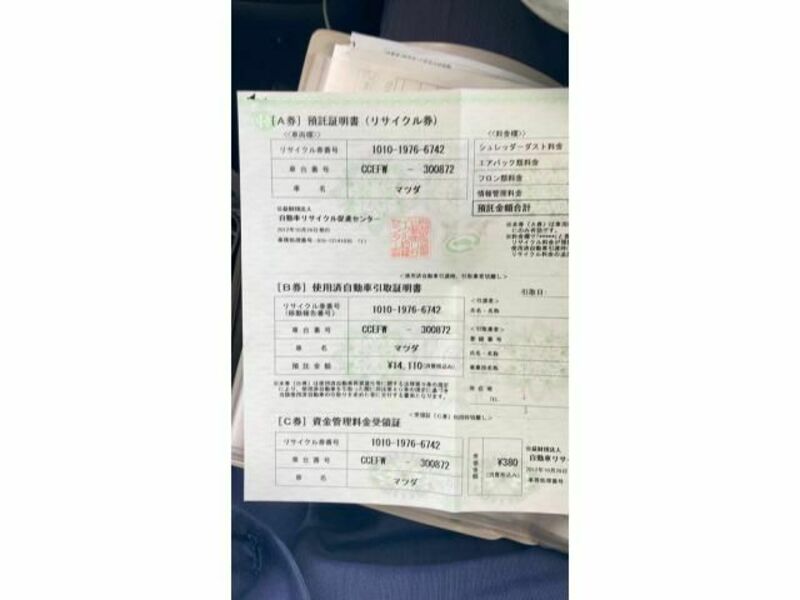 [A券] 預託証明書(リサイクル券)
<<車両欄>>
リサイクル券番号 1010-1976-6742
車台番号 CCEFW - 300872
車名 マツダ
<<料金欄>>
シュレッダーダスト料金
エアバッグ類料金
フロン類料金
情報管理料金
預託金額合計
公益財団法人
自動車リサイクル促進センター
2012年10月26日発行
<使用済自動車引渡時、引取業者切離し>
[B券] 使用済自動車引取証明書
引取日:
リサイクル券番号
(移動報告番号) 1010-1976-6742
車台番号 CCEFW - 300872
車名 マツダ
預託金額 ¥14,110(消費税込み)
<引渡者>
氏名・名称
<引取業者>
登録番号
氏名・名称
事業所名称
所在地
TEL
[C券] 資金管理料金受領証
リサイクル券番号 1010-1976-6742
車台番号 CCEFW - 300872
車名 マツダ
¥380
(消費税込み)
公益財団法人
自動車リサ
2012年10月26日